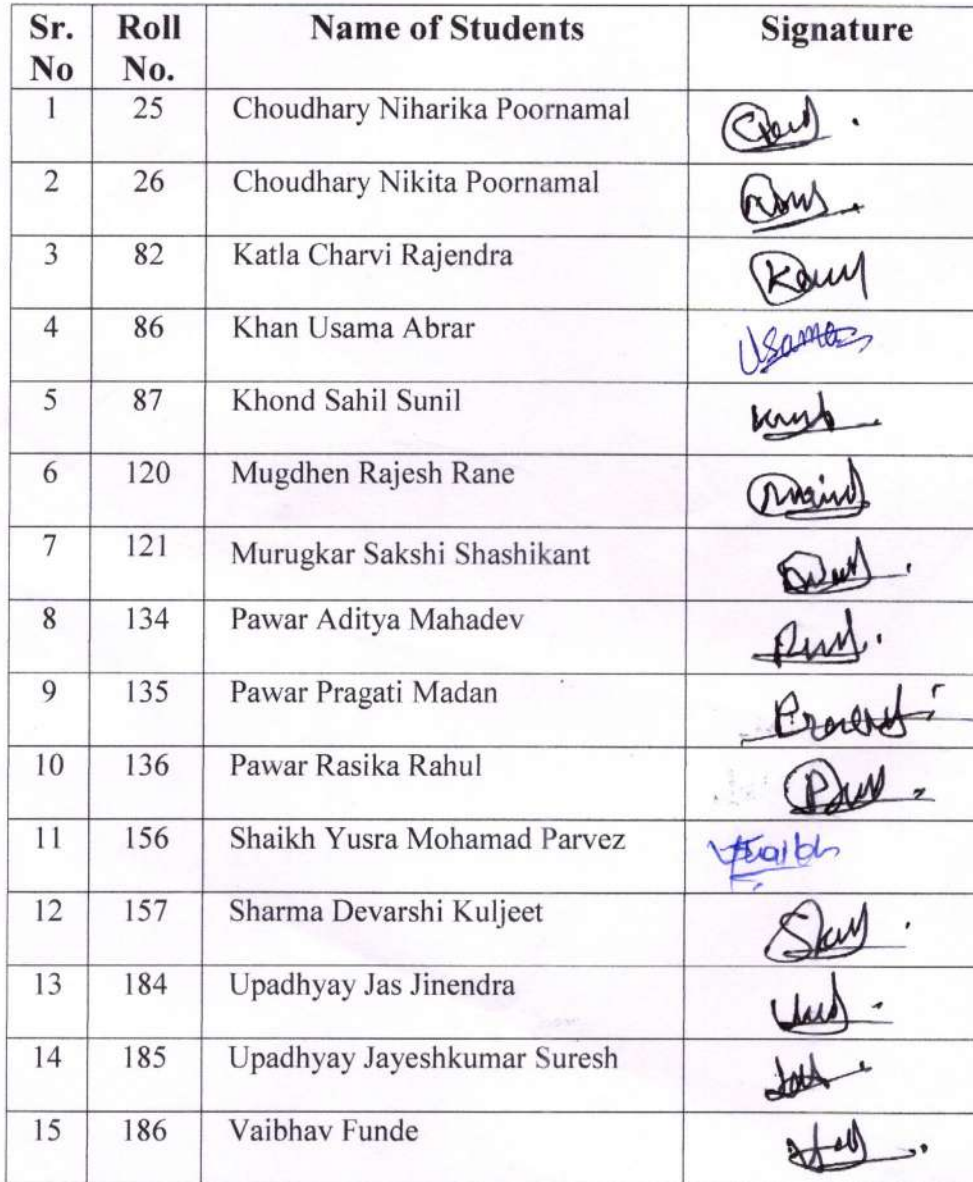 Sr. No Roll No. Name of Students Signature
1 25 Choudhary Niharika Poornamal
2 26 Choudhary Nikita Poornamal
3 82 Katla Charvi Rajendra
4 86 Khan Usama Abrar Usama
5 87 Khond Sahil Sunil
6 120 Mugdhen Rajesh Rane
7 121 Murugkar Sakshi Shashikant
8 134 Pawar Aditya Mahadev
9 135 Pawar Pragati Madan
10 136 Pawar Rasika Rahul
11 156 Shaikh Yusra Mohamad Parvez
12 157 Sharma Devarshi Kuljeet
13 184 Upadhyay Jas Jinendra
14 185 Upadhyay Jayeshkumar Suresh
15 186 Vaibhav Funde